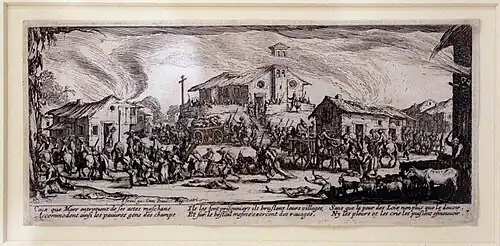 Ceux que Mars entretient de ses actes meschans
Accommodent ainsi les pauures gens des champs
Ils les font prisonniers ils bruslent leurs villages,
Et sur le bestail mesme exercent des rauages,
Sans que la peur des Loix non plus que le deuoir
Ny les pleurs et les cris les puissent esmouuoir.